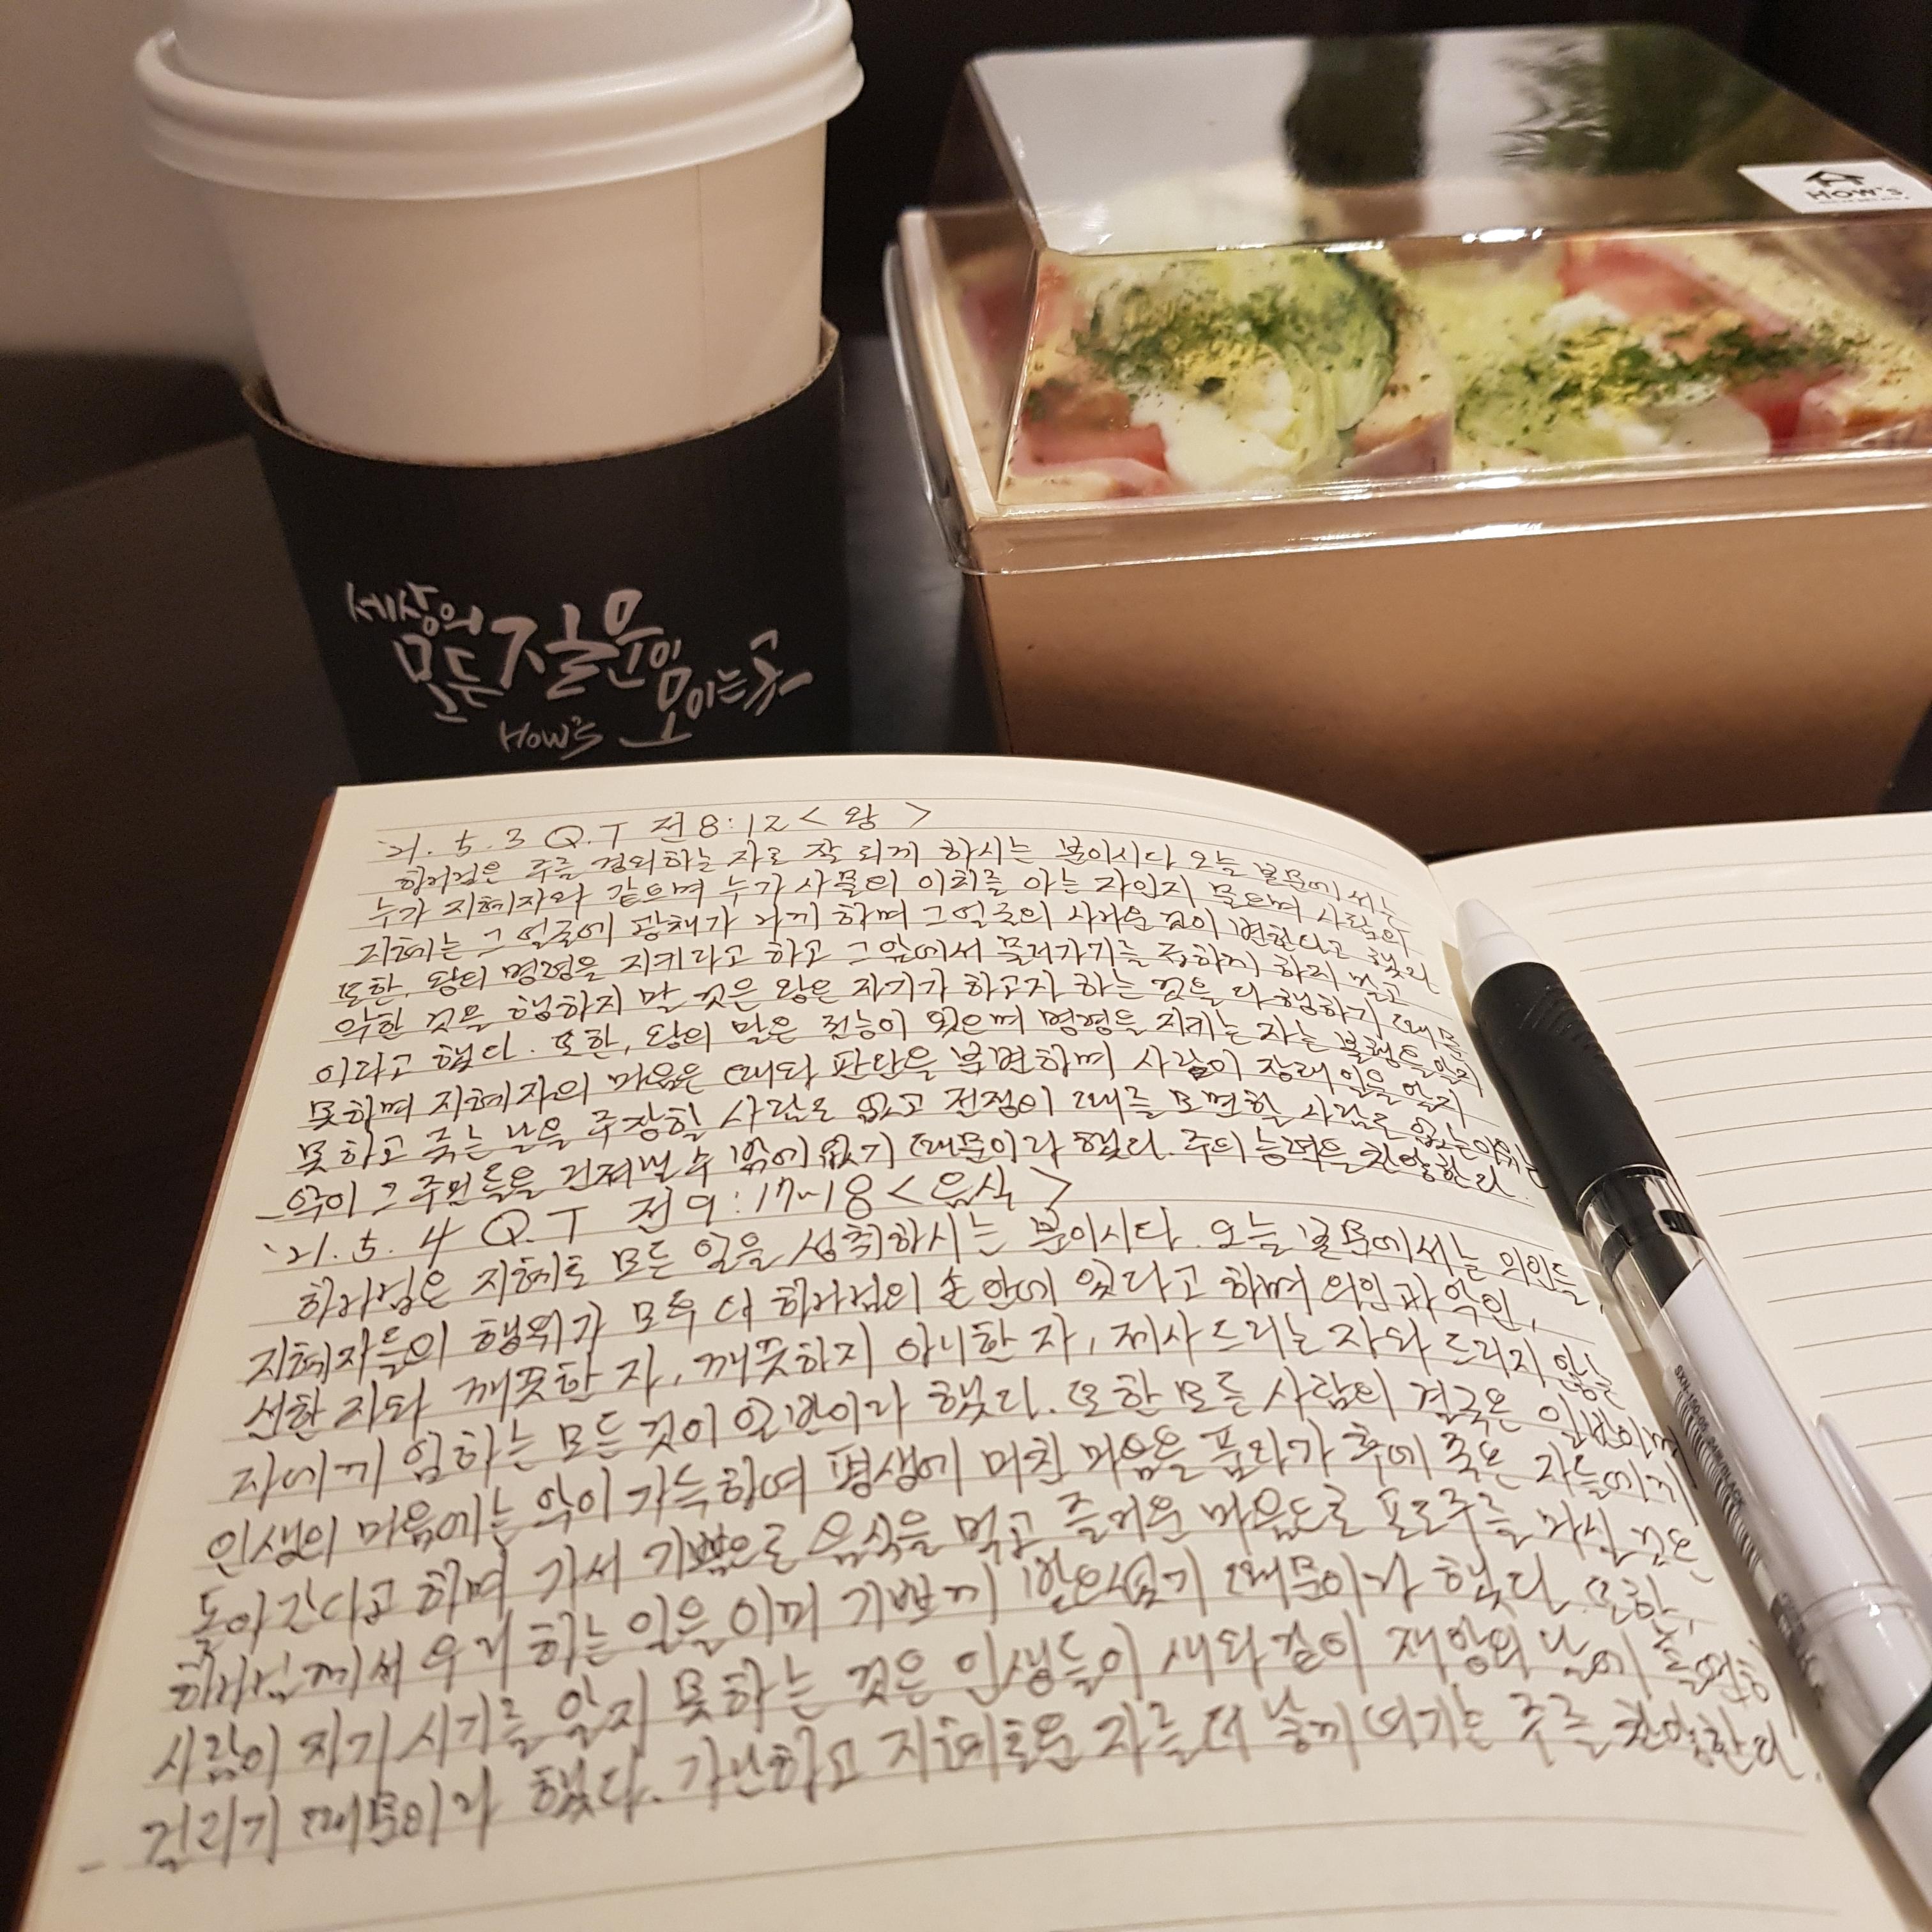 세상의
모든 질문이
모이는 곳
How's
HOW'S
'21. 5. 3 Q.T 전 8:12 < 왕 >
하나님은 주를 경외하는 자로 잘 되게 하시는 분이시다 오늘 본문에서는
누가 지혜자와 같으며 누가 사물의 이치를 아는 자인지 물으며 사람의
지혜는 그 얼굴에 광채가 나게 하며 그 얼굴의 사나운 것이 변한다고 했다
또한, 왕의 명령을 지키라고 하고 그 앞에서 물러가기를 급하게 하지 말고
악한 것을 행하지 말 것은 왕은 자기가 하고자 하는 것을 다 행하기 때문
이라고 했다. 또한, 왕의 말은 권능이 있으며 명령을 지키는 자는 불행을 알지
못하며 지혜자의 마음은 때와 판단을 분변하며 사람이 장래 일을 알지
못하고 죽는 날을 주장할 사람도 없고 전쟁이 때를 모면할 사람도 없는
악이 그 주민들을 건져낼 수 밖에 없기 때문이라 했다. 주의 능력을 찬양한다.
'21. 5. 4 Q.T 전 9:17~18 < 음식 >
하나님은 지혜로 모든 일을 성취하시는 분이시다. 오늘 본문에서는 의인들,
지혜자들의 행위가 모두 다 하나님의 손 안에 있다고 하며 의인과 악인,
선한 자와 깨끗한 자, 깨끗하지 아니한 자, 제사 드리는 자와 드리지 않는
자에게 임하는 모든 것이 일반이라 했다. 또한 모든 사람의 결국은 일반이며
인생의 마음에는 악이 가득하여 평생에 미친 마음을 품다가 후에 죽은 자들에게
돌아간다고 하며 가서 기쁨으로 음식을 먹고 즐거운 마음으로 포도주를 마실 것은
하나님께서 우리 하는 일을 이미 기쁘게 받으셨기 때문이라 했다. 또한,
사람이 자기 시기를 알지 못하는 것은 인생들이 새와 같이 재앙의 날에 홀연히
걸리기 때문이라 했다. 가난하고 지혜로운 자를 더 낫게 여기는 주를 찬양한다.